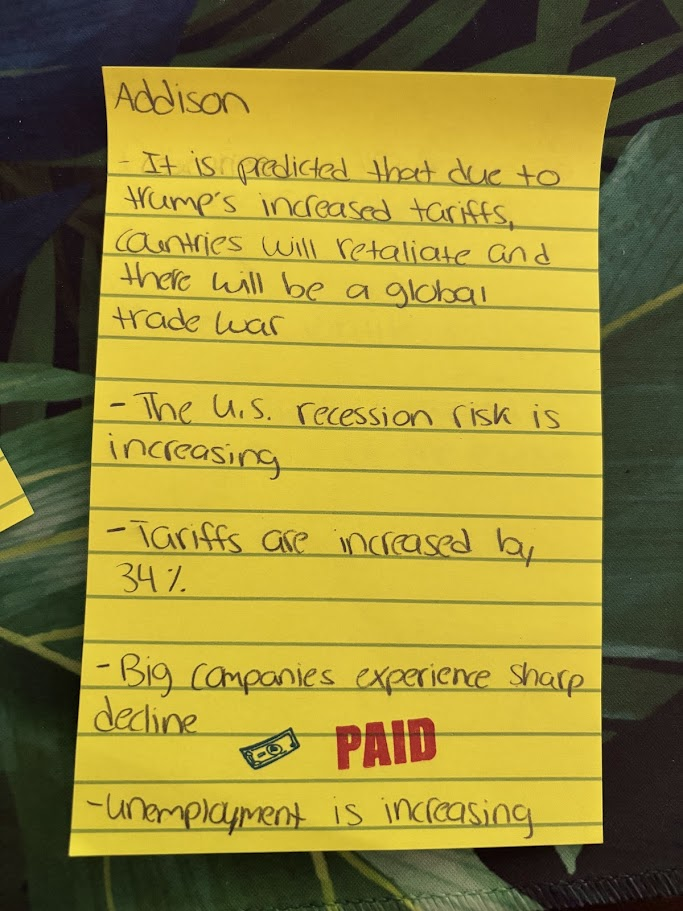 Addison
- It is predicted that due to
trump's increased tariffs,
countries will retaliate and
there will be a global
trade war
- The U.S. recession risk is
increasing
- Tariffs are increased by
34%
- Big companies experience sharp
decline
PAID
- unemployment is increasing